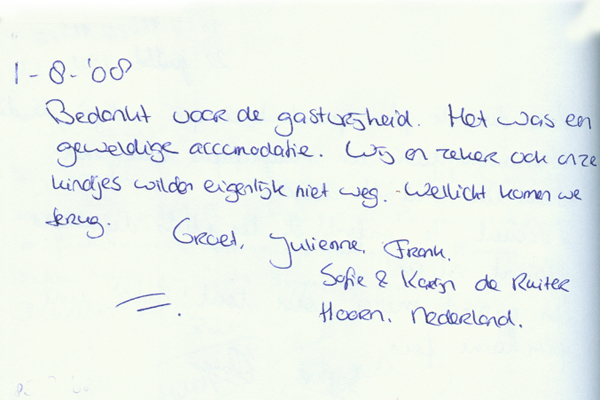 1-8-'08
Bedankt voor de gastvrijheid. Het was en
geweldige accomodatie. Wij en zeker ook onze
kindjes wilden eigenlijk niet weg. - Wellicht komen we
terug.
Groet, Julienne, Frank,
Sofie & Karijn de Ruiter
Hoorn, Nederland.